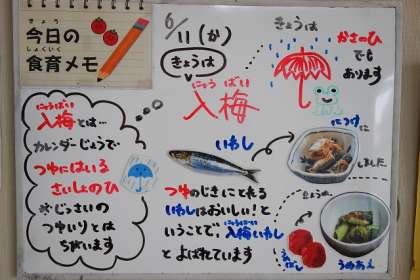 きょう
今日の
しょくいく
食育メモ
6/11(か)
きょうは
にゅうばい
入梅
きょうは
かさのひ
でも
あります
にゅうばい
入梅とは…
カレンダーじょうで
つゆにはいる
さいしょのひ
※じっさいの
つゆいりとは
ちがいます
いわし
につけに
しました
つゆのじきにとれる
いわしはおいしい!と
いうことで、入梅いわし
にゅうばい
とよばれています
きょうは、
うめあえ